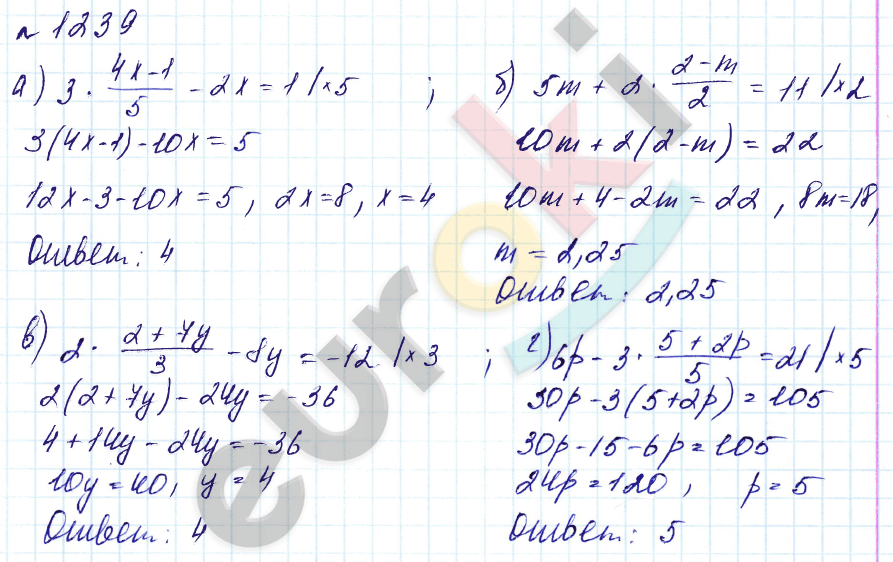 № 1239
а) 3 · (4x-1)/5 - 2x = 1 | ×5 ;
3(4x-1) - 10x = 5
12x - 3 - 10x = 5, 2x = 8, x = 4
Ответ: 4
б) 5m + 2 · (2-m)/2 = 11 | ×2
10m + 2(2-m) = 22
10m + 4 - 2m = 22, 8m = 18,
m = 2,25
Ответ: 2,25
в) 2 · (2+7y)/3 - 8y = -12 | ×3 ;
2(2+7y) - 24y = -36
4 + 14y - 24y = -36
10y = 40, y = 4
Ответ: 4
г) 6p - 3 · (5+2p)/5 = 21 | ×5
30p - 3(5+2p) = 105
30p - 15 - 6p = 105
24p = 120, p = 5
Ответ: 5
euroki